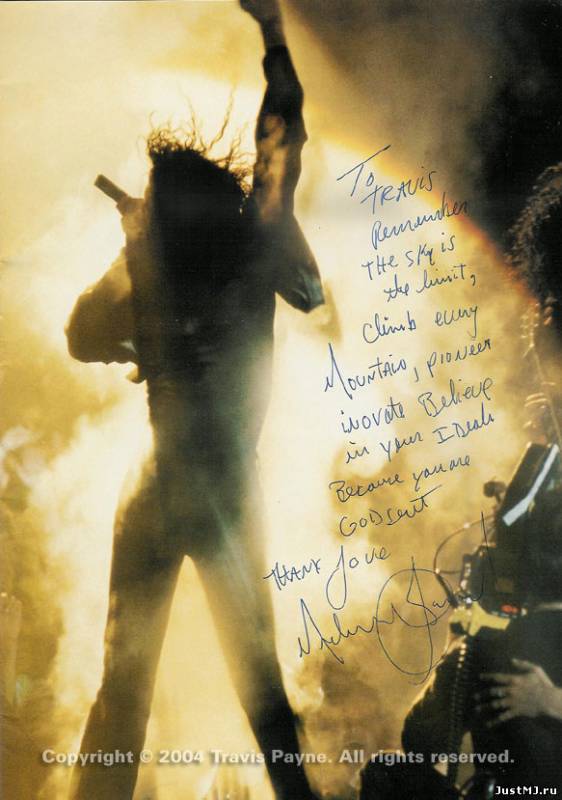 To
TRAVIS
Remember
THE SKY is
the limit,
Climb every
Mountain, pioneer
inovate Believe
in your IDeals
Because you are
GODsent
THANK
Love
Michael Jackson
Copyright © 2004 Travis Payne. All rights reserved.
JustMJ.ru